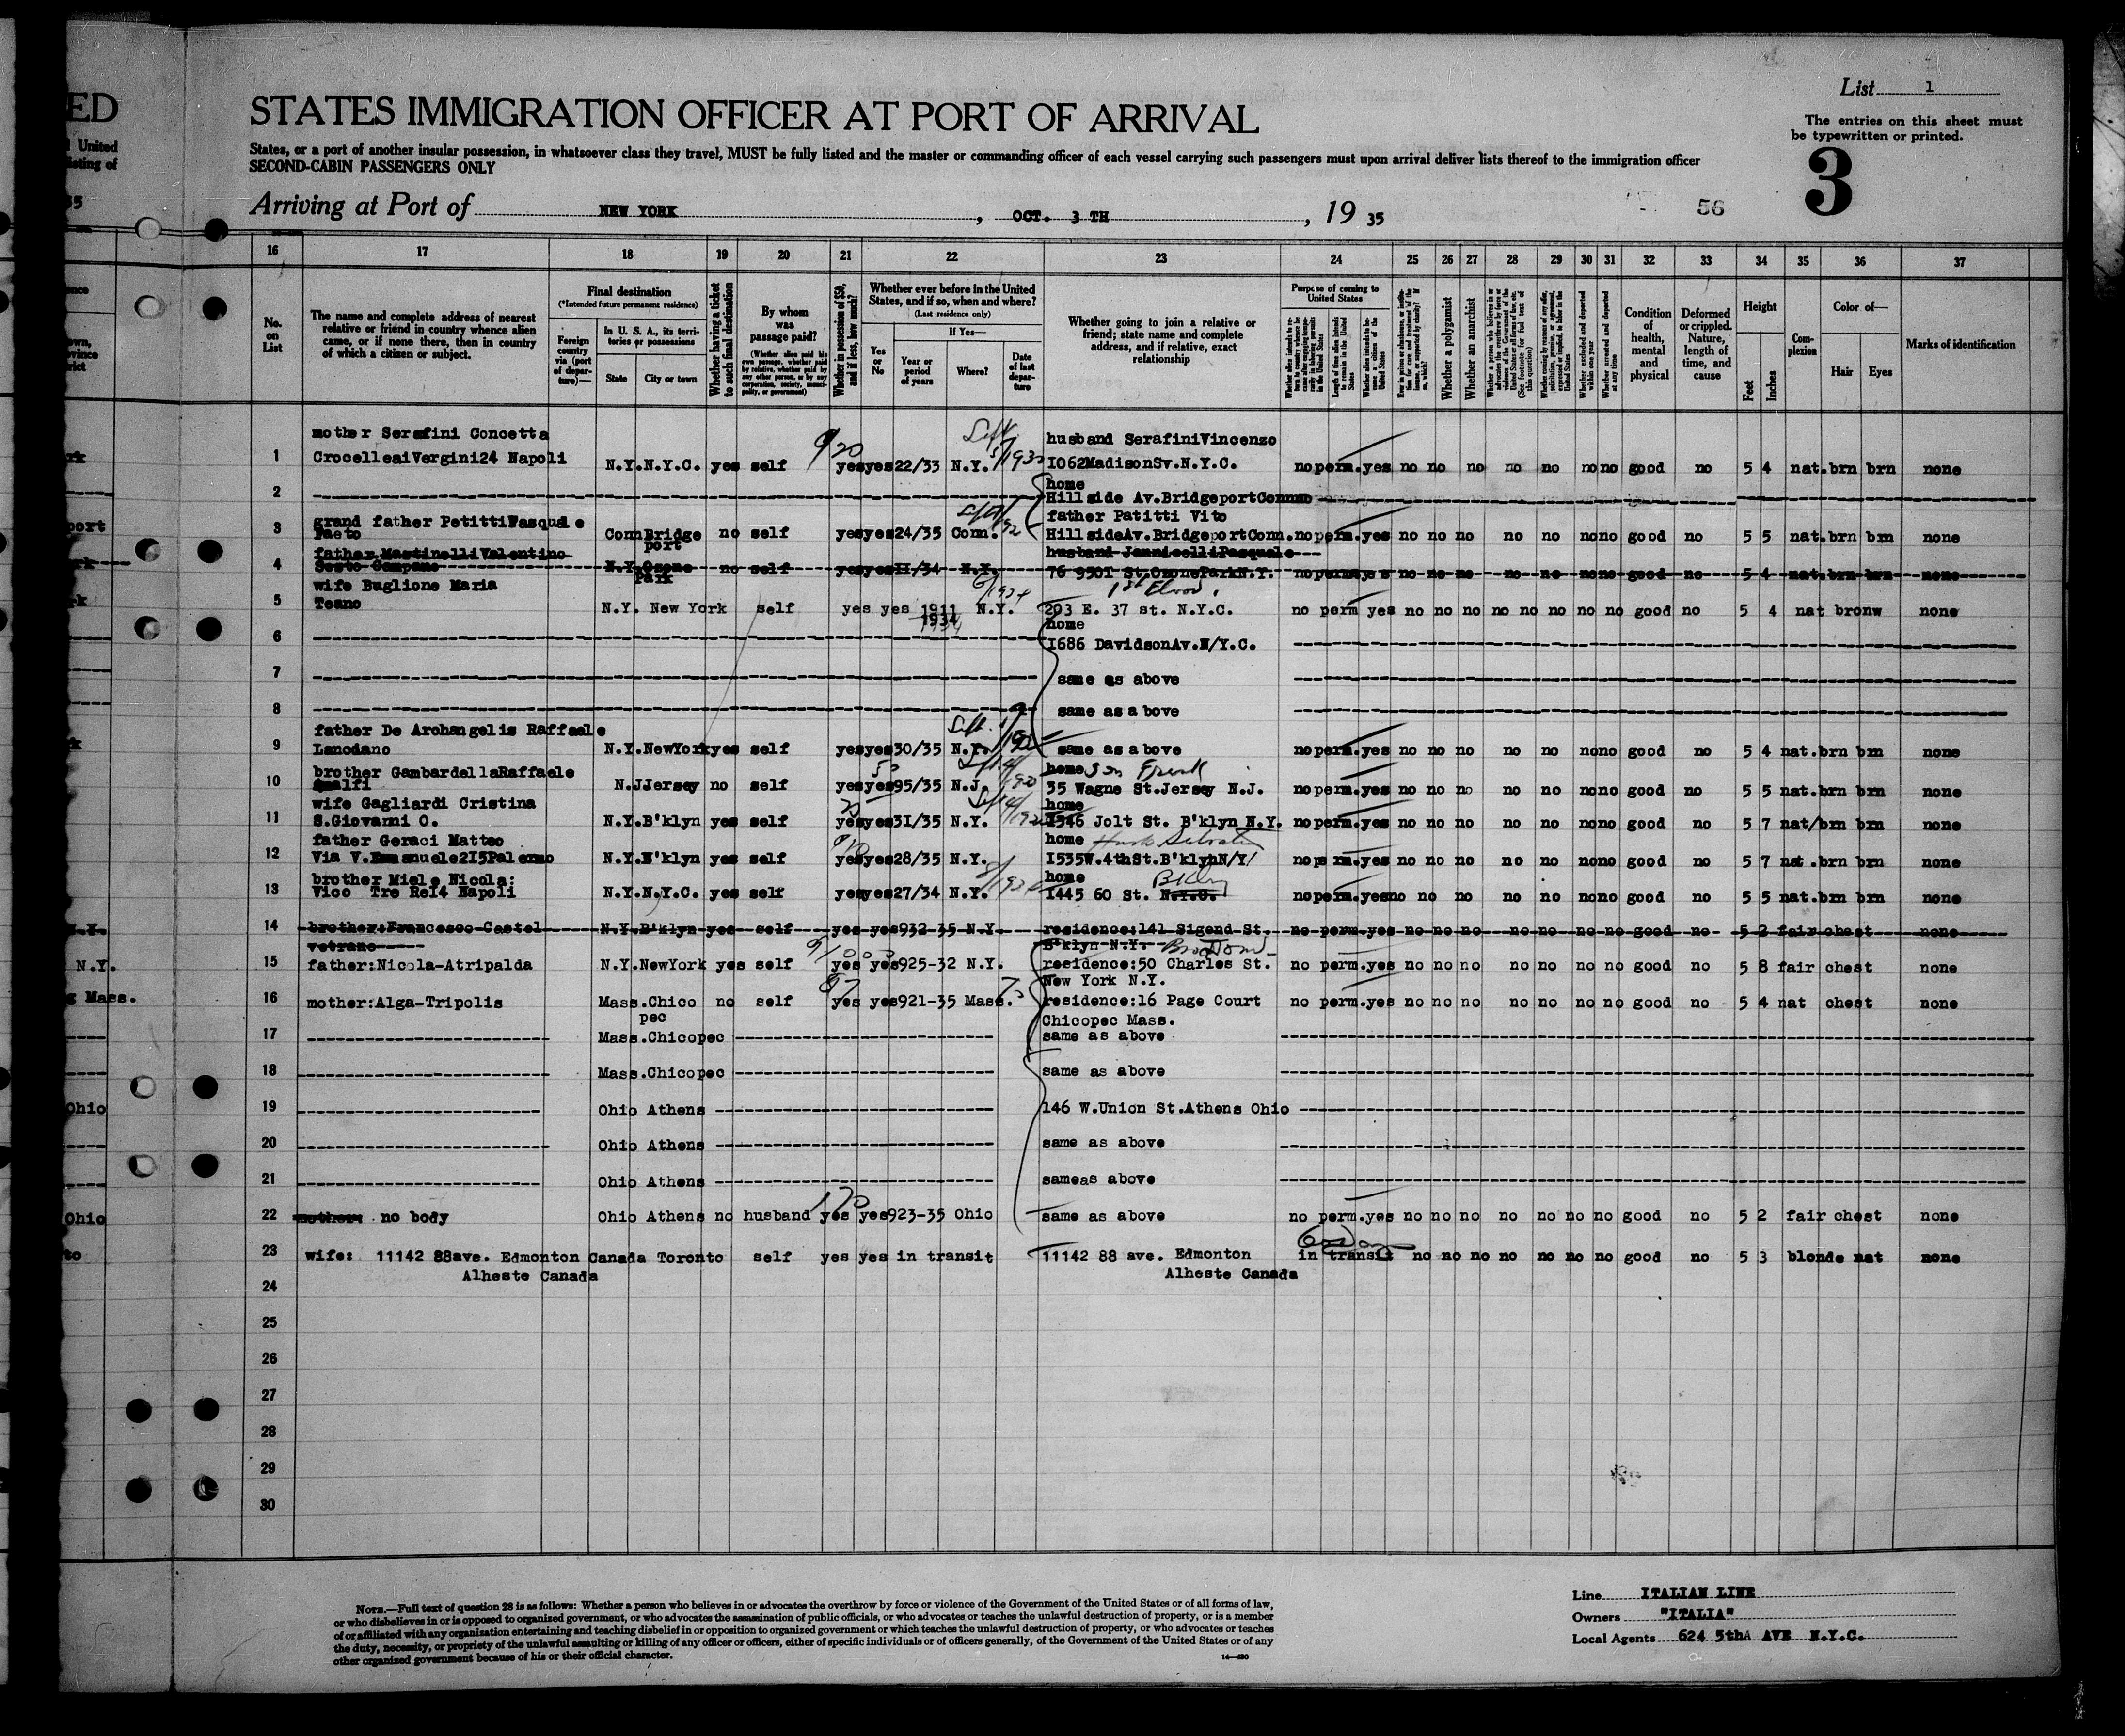 List 1
ED
STATES IMMIGRATION OFFICER AT PORT OF ARRIVAL
The entries on this sheet must
be typewritten or printed.
l United
isting of
States, or a port of another insular possession, in whatsoever class they travel, MUST be fully listed and the master or commanding officer of each vessel carrying such passengers must upon arrival deliver lists thereof to the immigration officer
SECOND-CABIN PASSENGERS ONLY
3
35
Arriving at Port of NEW YORK, OCT. 3 TH, 19 35
56
16 17 18 19 20 21 22 23 24 25 26 27 28 29 30 31 32 33 34 35 36 37
No. on List
The name and complete address of nearest relative or friend in country whence alien came, or if none there, then in country of which a citizen or subject.
Final destination
(*Intended future permanent residence)
Foreign country via (port of departure)—
In U. S. A., its territories or possessions
State
City or town
Whether having a ticket to such final destination
By whom was passage paid?
(Whether alien paid his own passage, whether paid by relative, whether paid by any other person, or by any corporation, society, municipality, or government)
Whether in possession of $50, and if less, how much?
Whether ever before in the United States, and if so, when and where?
(Last residence only)
Yes or No
If Yes—
Year or period of years
Where?
Date of last departure
Whether going to join a relative or friend; state name and complete address, and if relative, exact relationship
Purpose of coming to United States
Length of time alien intends to remain in the United States
Whether alien intends to become a citizen of the United States
Whether a polygamist
Whether an anarchist
Whether excluded and deported within one year
Whether arrested and deported at any time
Condition of health, mental and physical
Deformed or crippled. Nature, length of time, and cause
Height
Feet
Inches
Complexion
Color of—
Hair
Eyes
Marks of identification
mother Serafini Concetta husband SerafiniVincenzo
1 CrocelleaiVergini24 Napoli N.Y.N.Y.C. yes self yesyes22/33 N.Y. I062MadisonSv.N.Y.C. noperm.yes no no no no no nono good no 5 4 nat.brn brn none
home
2 Hillside Av.BridgeportConnn
grand father PetittiPasquale father Patitti Vito
3 Faeto ConnBridge no self yesyes24/35 Conn. HillsideAv.BridgeportConn.noperm.yes no no no no no nono good no 5 5 nat.brn brn none
port
father MastinelliValentino husband JannicelliPasquale
4 Sesto Campano N.Y.Ozone no self yesyesII/34 N.Y. 76 950I St.OzoneParkN.Y. nopermyes no no no no no nono good no 5 4 nat.brn brn none
Park
wife Buglione Maria
5 Teano N.Y. New York self yes yes 1911 N.Y. 203 E. 37 st. N.Y.C. no perm yes no no no no no no no good no 5 4 nat bronw none
1934
home
6 I686 DavidsonAv.N/Y.C.
7 same as above
8 same as above
father De Archangelis Raffaele
9 Lanciano N.Y.NewYorkyes self yesyes30/35 N.Y. same as above noperm.yes no no no no no nono good no 5 4 nat.brn brn none
brother GambardellaRaffaele home Son Frank
10 Amalfi N.JJersey no self yesyes95/35 N.J. 35 Wagne St.Jersey N.J. noperm.yes no no no no no nono good no 5 5 nat.brn brn none
wife Gagliardi Cristina home
11 S.Giovanni O. N.Y.B'klyn yes self yesyes3I/35 N.Y. I546 Jolt St. B'klyn N.Y. noperm.yes no no no no no nono good no 5 7 nat/brn brn none
father Geraci Matteo home
12 Via V.Emmanuele2I5Palermo N.Y.B'klyn yes self yesyes28/35 N.Y. I535W.4thSt.B'klyhN/Y/ noperm.yes no no no no no nono good no 5 7 nat.brn brn none
brother Miele Nicola: home Bklyn
13 Vico Tre Re14 Napoli N.Y.N.Y.C. yes self yesyes27/34 N.Y. I445 60 St. N.Y.C. noperm.yesno no no no no nono good no 5 5 nat.brn brn none
14 brother:Francesco Castel N.Y.B'klyn yes self yes yes932-35 N.Y. residence:141 Sigend St. no perm.yes no no no no no no no good no 5 2 fair chest none
vetrano B'klyn N.Y.
15 father:Nicola-Atripalda N.Y.NewYork yes self yes yes925-32 N.Y. residence:50 Charles St. no perm.yes no no no no no no no good no 5 8 fair chest none
New York N.Y.
16 mother:Alga-Tripolis Mass.Chico no self yes yes921-35 Mass. residence:16 Page Court no perm.yes no no no no no no no good no 5 4 nat chest none
pec Chicopec Mass.
17 Mass.Chicopec same as above
18 Mass.Chicopec same as above
19 Ohio Athens 146 W.Union St.Athens Ohio
20 Ohio Athens same as above
21 Ohio Athens sameas above
22 mother: no body Ohio Athens no husband yes yes923-35 Ohio same as above no perm.yes no no no no no no no good no 5 2 fair chest none
23 wife: 11142 88ave. Edmonton Canada Toronto self yes yes in transit 11142 88 ave. Edmonton in transit no no no no no no no good no 5 3 blonde nat none
Alheste Canada Alheste Canada
24
25
26
27
28
29
30
port
N.Y.
N.Y.
g Mass.
Ohio
Ohio
to
NOTE.—Full text of question 28 is as follows: Whether a person who believes in or advocates the overthrow by force or violence of the Government of the United States or of all forms of law,
or who disbelieves in or is opposed to organized government, or who advocates the assassination of public officials, or who advocates or teaches the unlawful destruction of property, or is a member
of or affiliated with any organization entertaining and teaching disbelief in or opposition to organized government or which teaches the unlawful destruction of property, or who advocates or teaches
the duty, necessity, or propriety of the unlawful assaulting or killing of any officer or officers, either of specific individuals or of officers generally, of the Government of the United States or of any
other organized government because of his or their official character.
14—480
Line ITALIAN LINE
Owners "ITALIA"
Local Agents 624 5thA AVE N.Y.C.